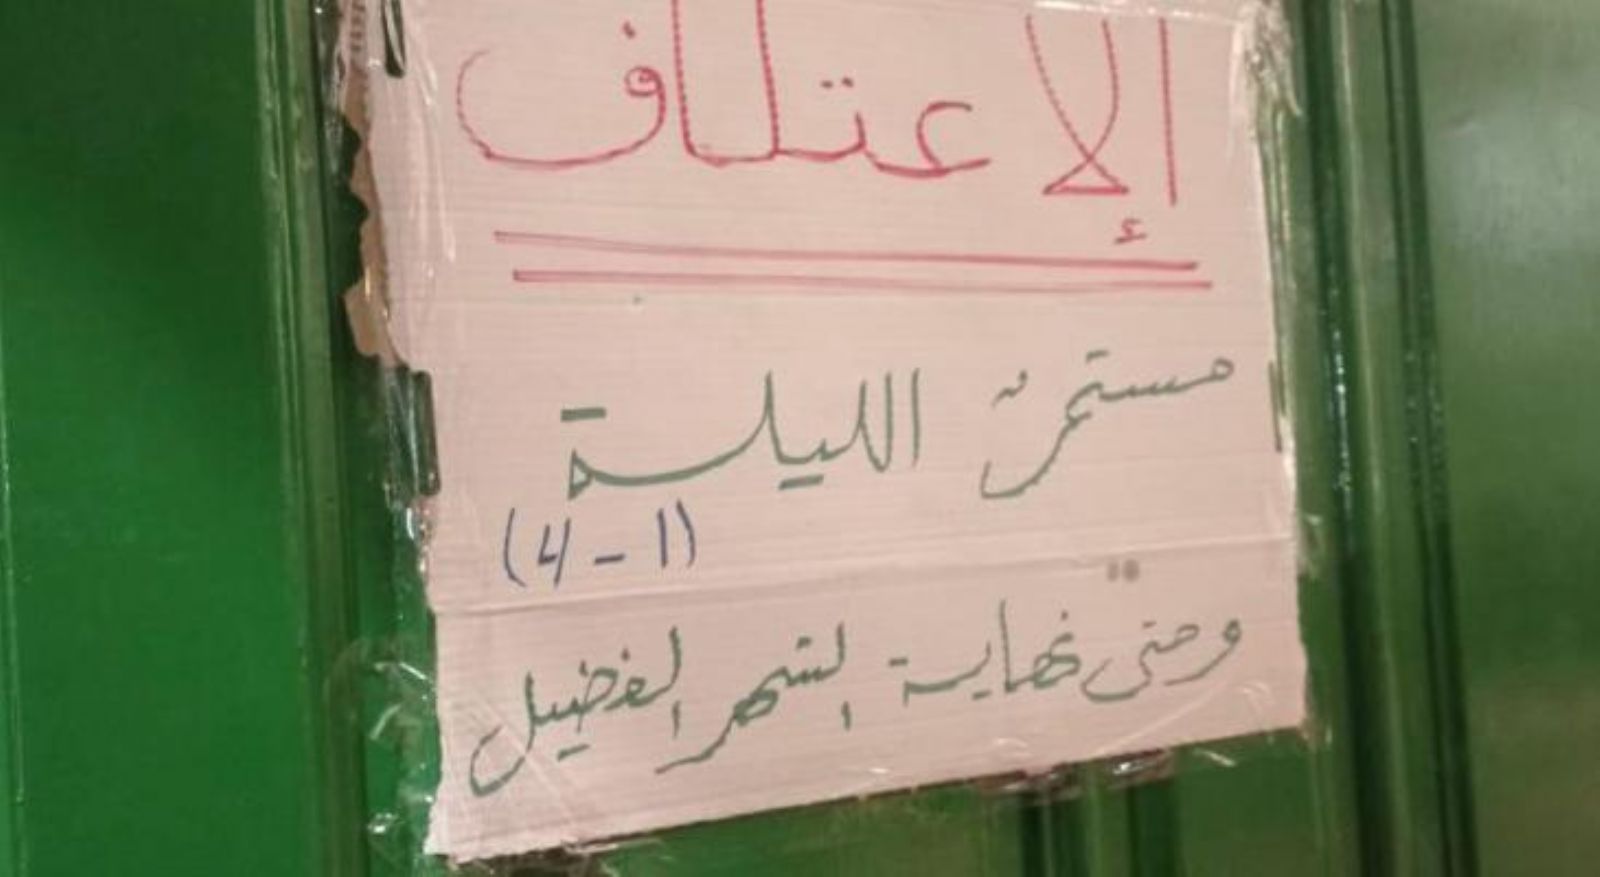 الإعتكاف
مستمر الليلة
(1-4)
وحتى نهاية الشهر الفضيل